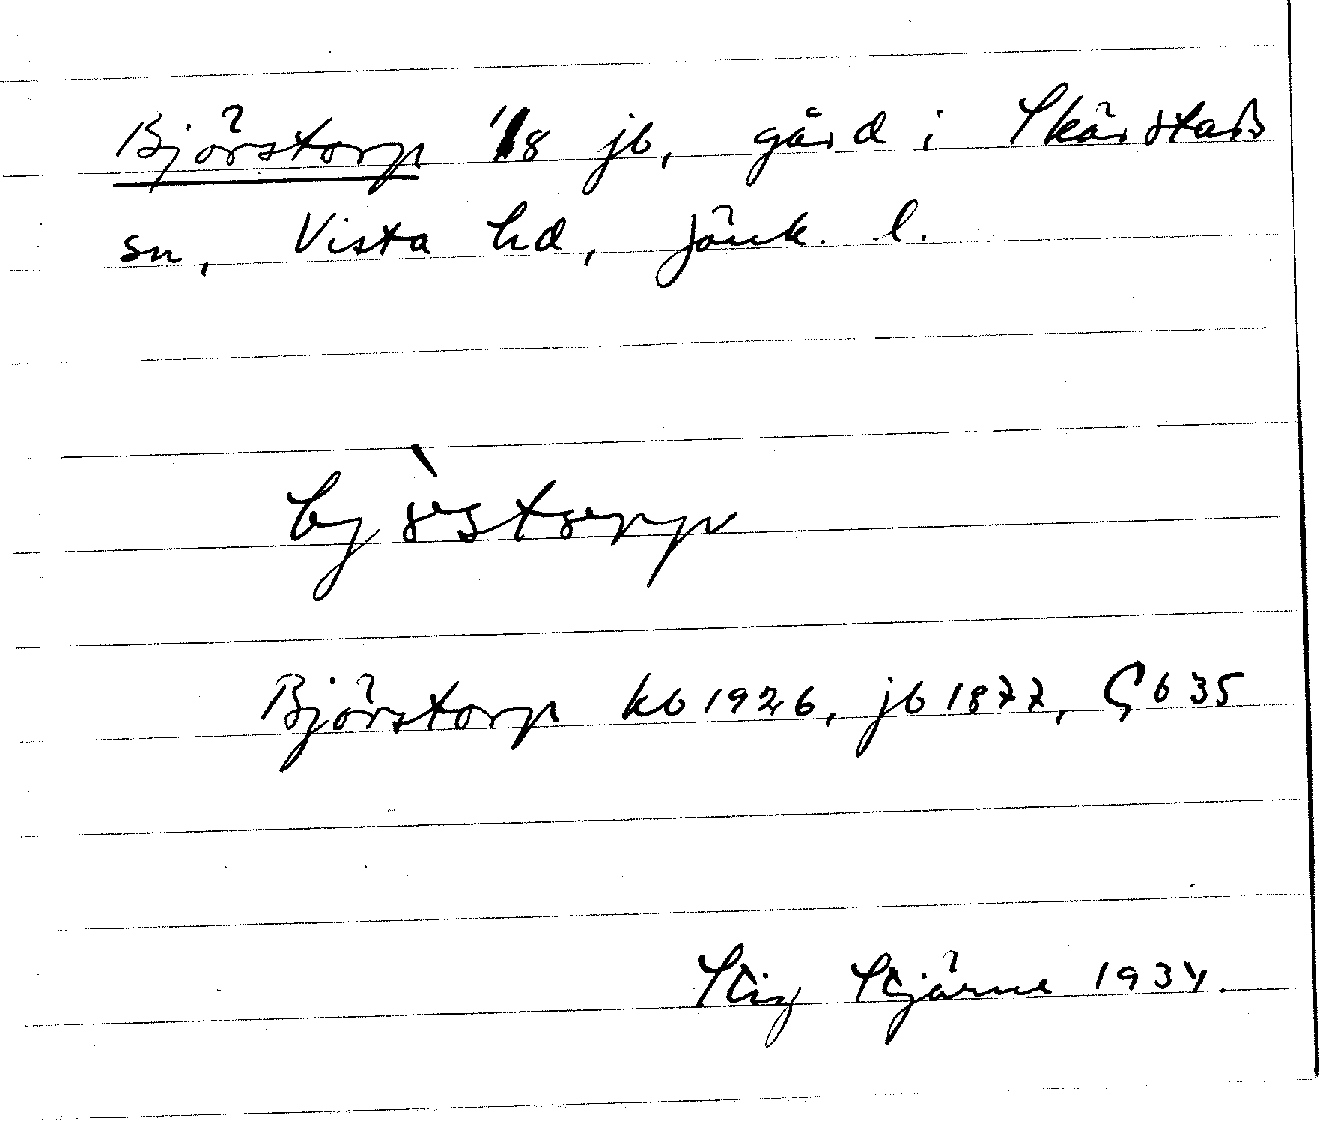 Björstorp 1/8 jb, gård i Skärstads
sn, Vista hd, Jönk. l.
Björstorp kb 1926, jb 1877, Gb 35
Stig Stjärne 1934.